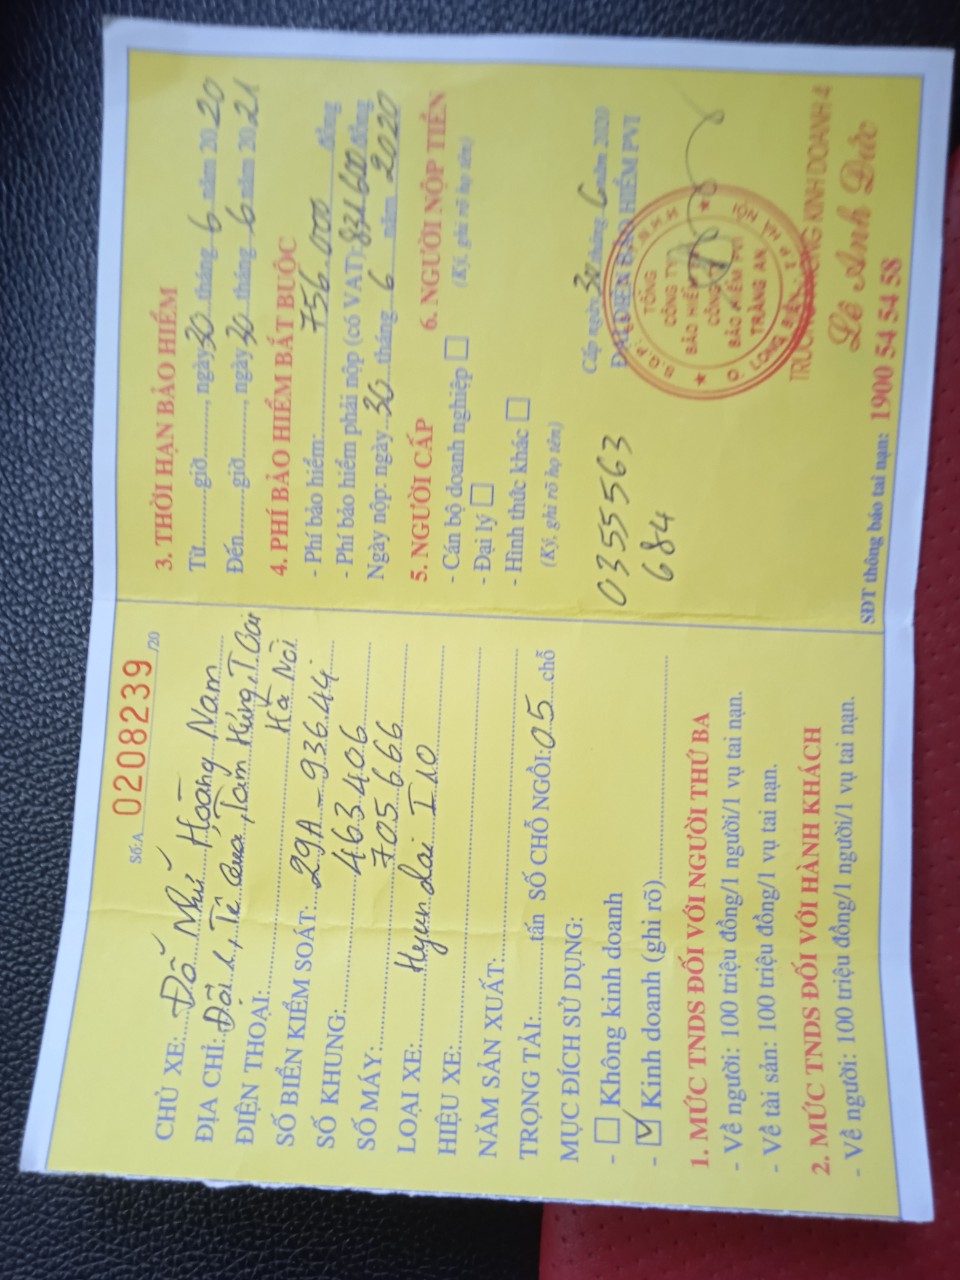 Số:A 0208239 /20
CHỦ XE: Đỗ Như Hoàng Nam
ĐỊA CHỈ: Đội 1, Tê Quả, Tam Hưng, T. Oai
ĐIỆN THOẠI: Hà Nội
SỐ BIỂN KIỂM SOÁT: 29A - 936.44
SỐ KHUNG: 463406
SỐ MÁY: 705666
LOẠI XE: Hyundai I10
HIỆU XE:
NĂM SẢN XUẤT:
TRỌNG TẢI: tấn SỐ CHỖ NGỒI: 05 chỗ
MỤC ĐÍCH SỬ DỤNG:
- Không kinh doanh
- Kinh doanh (ghi rõ)
1. MỨC TNDS ĐỐI VỚI NGƯỜI THỨ BA
- Về người: 100 triệu đồng/1 người/1 vụ tai nạn.
- Về tài sản: 100 triệu đồng/1 vụ tai nạn.
2. MỨC TNDS ĐỐI VỚI HÀNH KHÁCH
- Về người: 100 triệu đồng/1 người/1 vụ tai nạn.
3. THỜI HẠN BẢO HIỂM
Từ giờ, ngày 30 tháng 6 năm 20 20
Đến giờ, ngày 30 tháng 6 năm 20 21
4. PHÍ BẢO HIỂM BẮT BUỘC
- Phí bảo hiểm: 756.000 đồng
- Phí bảo hiểm phải nộp (có VAT): 831.600 đồng
Ngày nộp: ngày 30 tháng 6 năm 2020
5. NGƯỜI CẤP 6. NGƯỜI NỘP TIỀN
- Cán bộ doanh nghiệp (Ký, ghi rõ họ tên)
- Đại lý
- Hình thức khác
(Ký, ghi rõ họ tên)
Cấp ngày 30 tháng 6 năm 2020
ĐẠI DIỆN BẢO HIỂM PVI
0355563
684
TỔNG
CÔNG TY
BẢO HIỂM
CÔNG TY
BẢO HIỂM PVI
TRÀNG AN
Q. LONG BIÊN - T.P HÀ NỘI
TRƯỞNG PHÒNG KINH DOANH 4
Lê Anh Đức
SĐT thông báo tai nạn: 1900 54 54 58